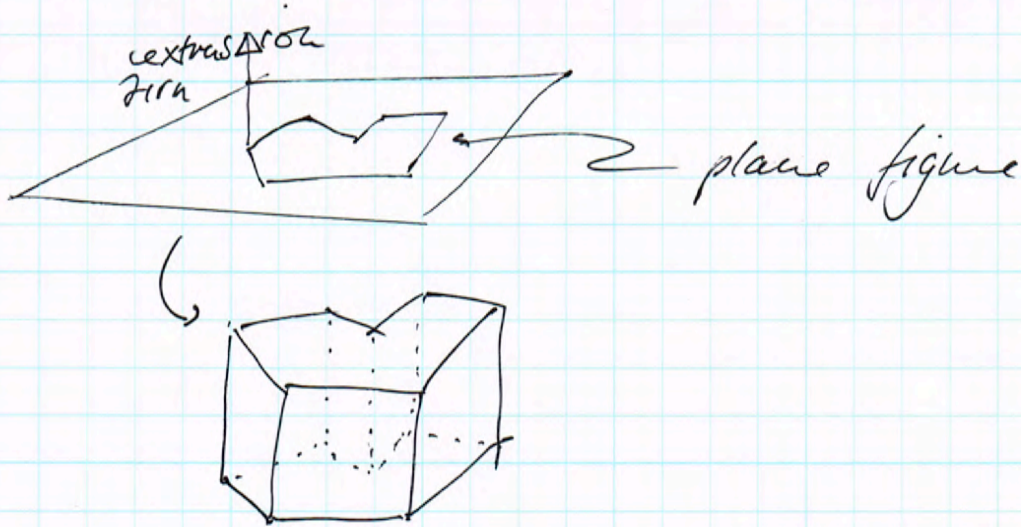 extrusion
dirn
plane figure